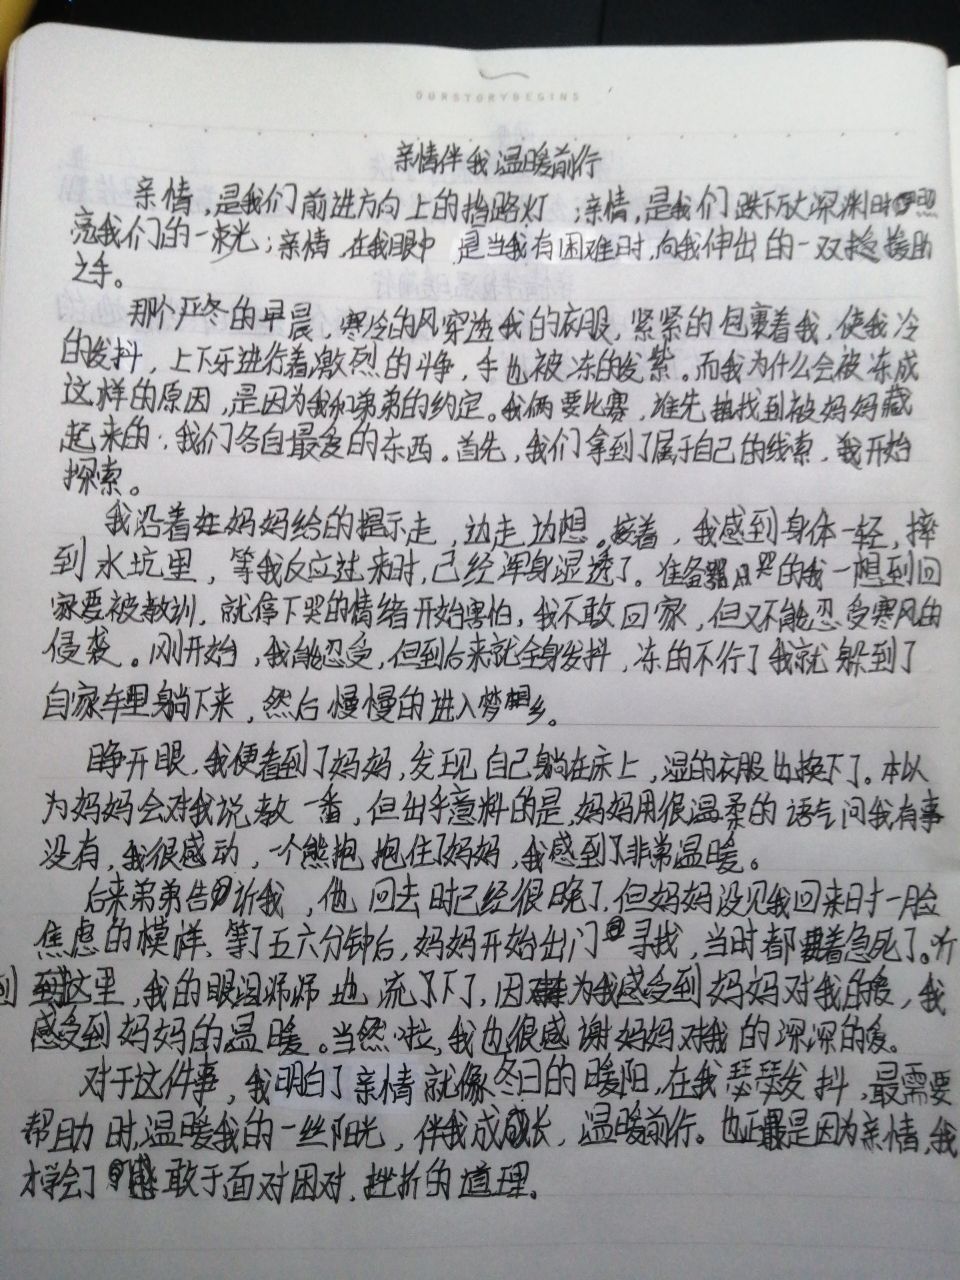 OURSTORYBEGINS
亲情伴我温暖前行
亲情,是我们前进方向上的挡路灯;亲情,是我们跌下放大深渊时照
亮我们的一束光;亲情,在我眼中是当我有困难时,向我伸出的一双援助
之手。
那个严冬的早晨,寒冷的风穿透我的衣服,紧紧的包裹着我,使我冷
的发抖,上下牙进行着激烈的斗争,手也被冻的发紫。而我为什么会被冻成
这样的原因,是因为我和弟弟的约定。我俩要比赛,谁先找到被妈妈藏
起来的:我们各自最爱的东西。首先,我们拿到了属于自己的线索,我开始
探索。
我沿着妈妈给的提示走,边走边想。接着,我感到身体一轻,摔
到水坑里,等我反应过来时,已经浑身湿透了。准备哭的我一想到回
家要被教训,就停下哭的情绪开始害怕,我不敢回家,但又不能忍受寒风的
侵袭。刚开始,我能忍受,但到后来就全身发抖,冻的不行了我就躲到了
自家车里躺下来,然后慢慢的进入梦乡。
睁开眼,我便看到了妈妈,发现自己躺在床上,湿的衣服也换下了。本以
为妈妈会对我说教一番,但出乎意料的是,妈妈用很温柔的语气问我有事
没有,我很感动,一个熊抱抱住了妈妈,我感到了非常温暖。
后来弟弟告诉我,他回去时已经很晚了,但妈妈没见我回来时一脸
焦虑的模样、等了五六分钟后,妈妈开始出门寻找,当时都着急死了。听
到这里,我的眼泪哗哗地流了下了,因为我感受到妈妈对我的爱,我
感受到妈妈的温暖。当然啦,我也很感谢妈妈对我的深深的爱。
对于这件事,我明白了亲情就像冬日的暖阳,在我瑟瑟发抖,最需要
帮助时,温暖我的一丝阳光,伴我成长,温暖前行。也正是因为亲情,我
才学会了敢于面对困对、挫折的道理。